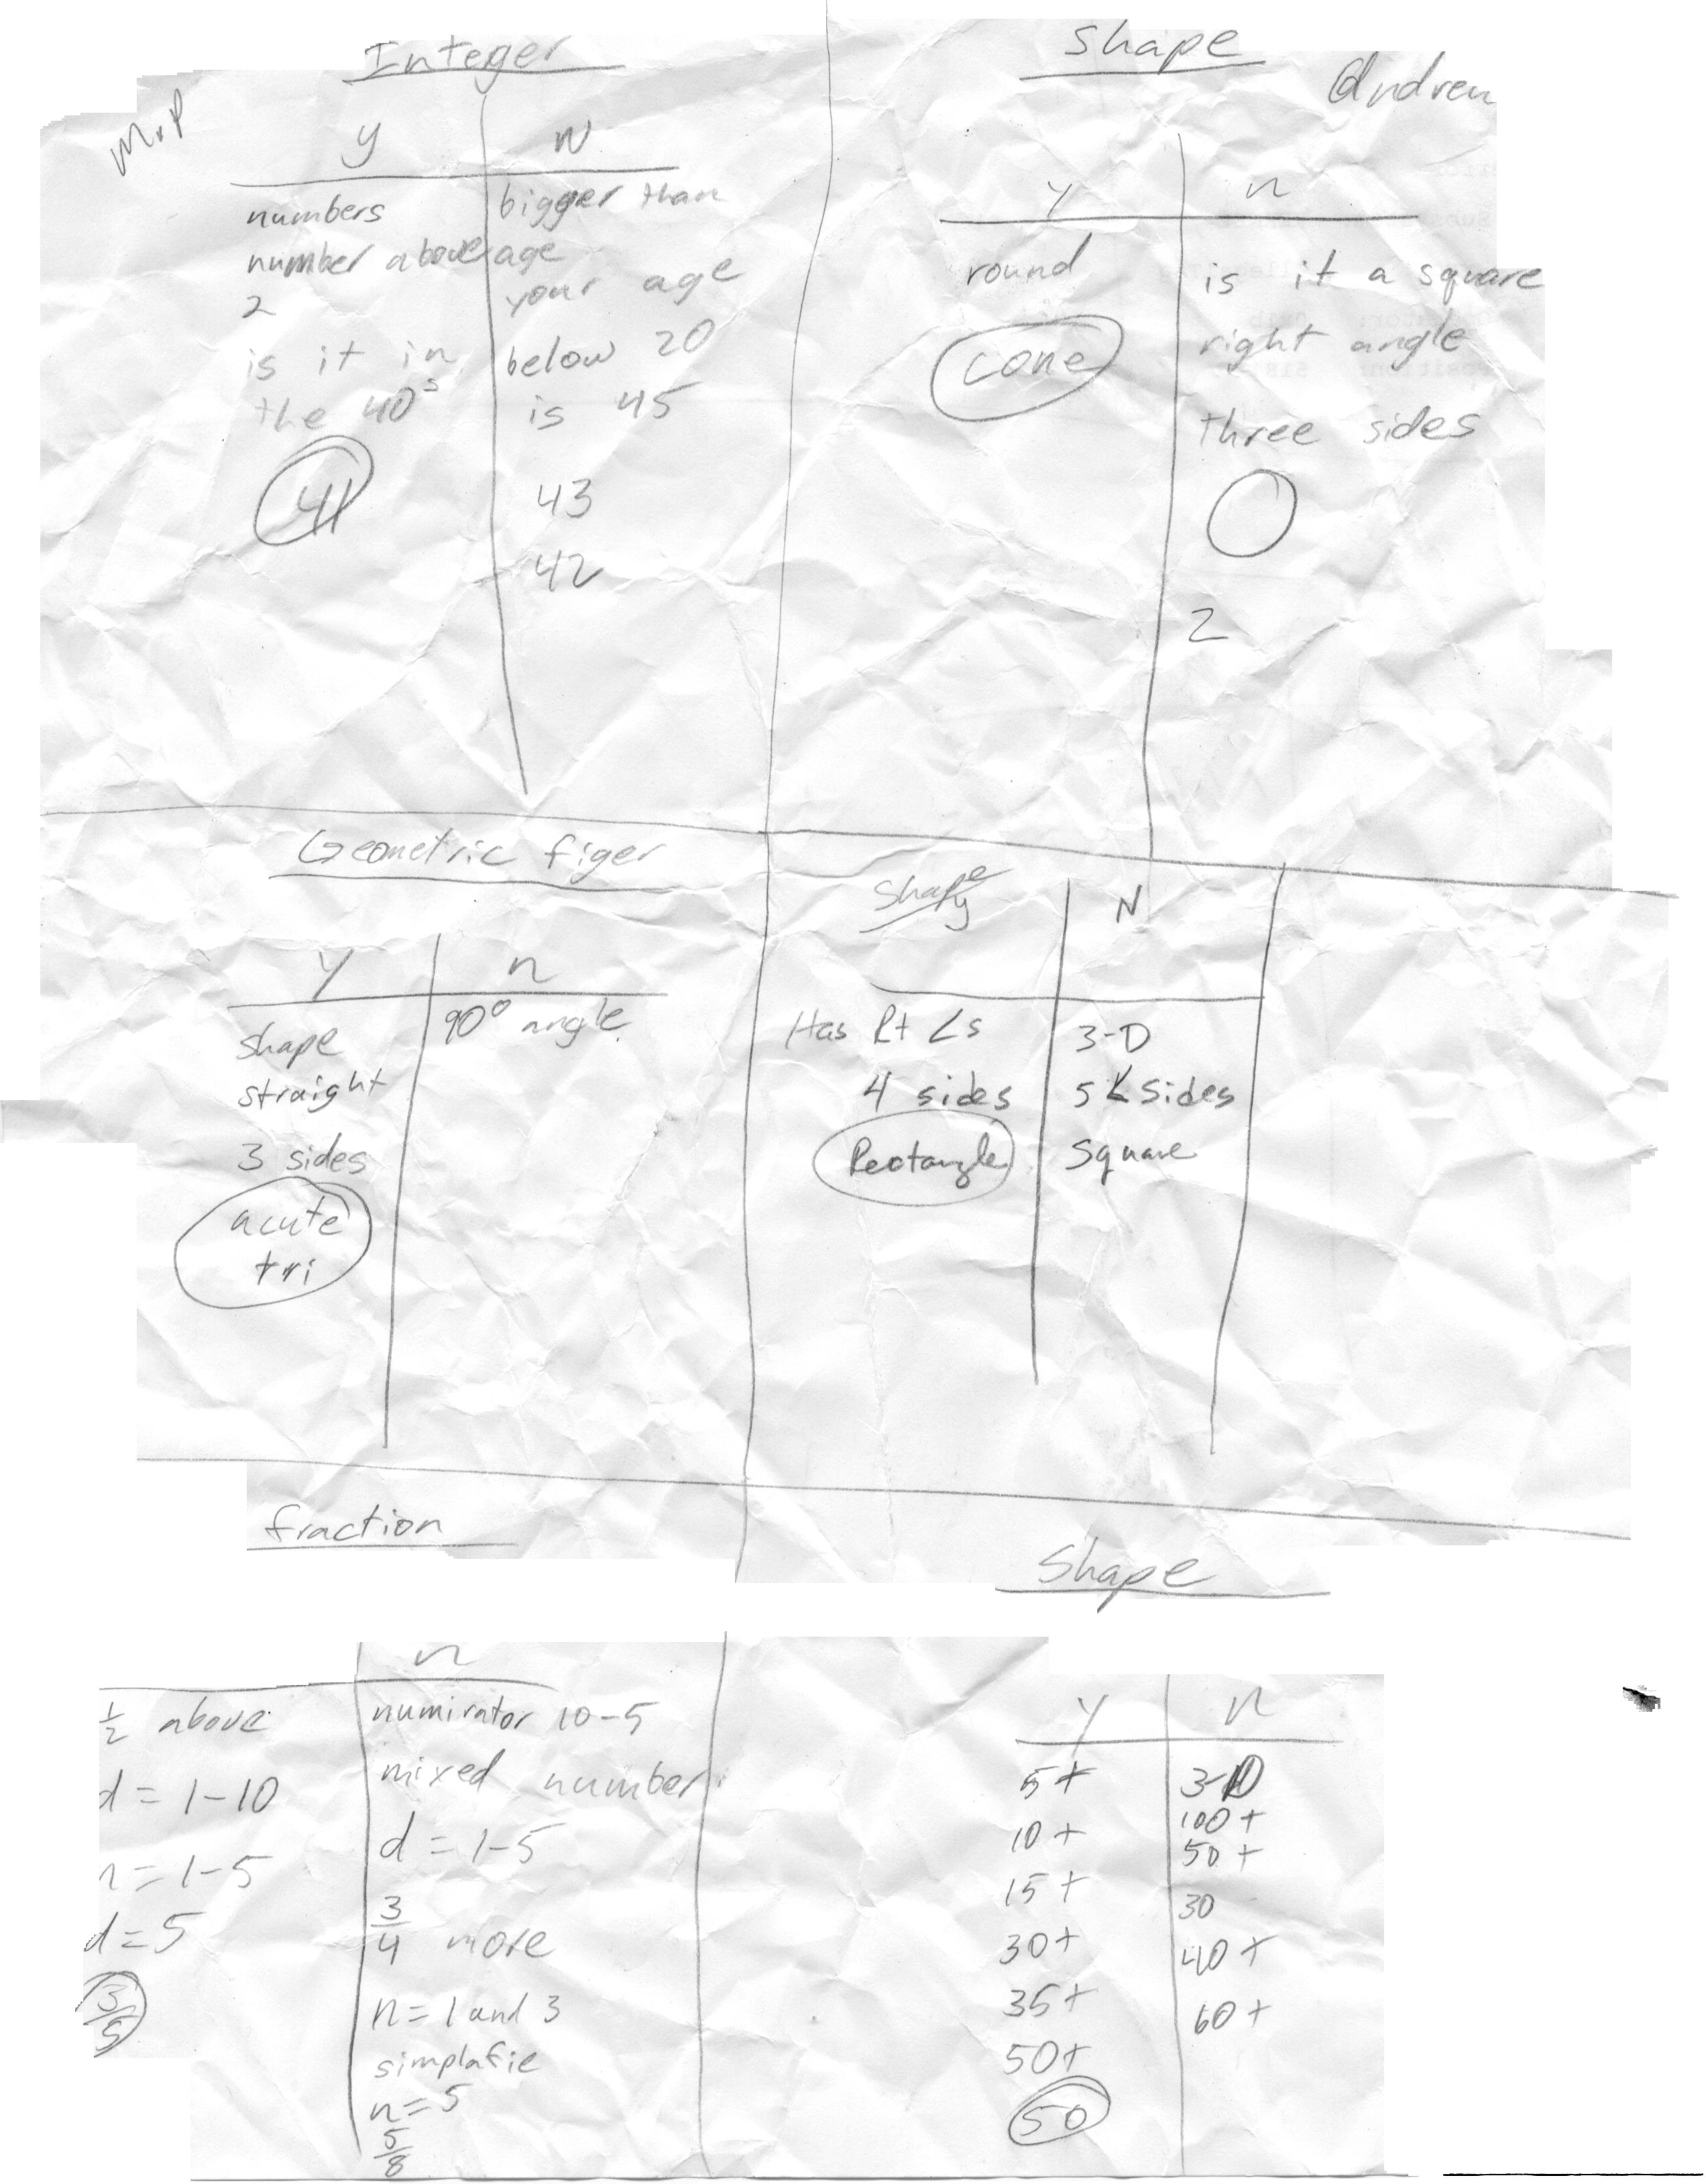 Integer
MrP
y N
numbers bigger than
number above age
2 your age
is it in below 20
the 40s is 45
41 43
42
Shape
Andrew
y n
round is it a square
cone right angle
three sides
2
Geometric figer
y n
shape 90° angle
straight
3 sides
acute
tri
Shape
y N
Has Rt ∠s 3-D
4 sides 5 < sides
Rectangle Square
fraction
n
1/2 above numirator 10-5
d = 1-10 mixed number
n = 1-5 d = 1-5
d = 5 3/4 more
3/5 n = 1 and 3
simplafie
n = 5
5/8
Shape
y n
5+ 3-D
10+ 100+
15+ 50+
30+ 30
35+ 40+
50+ 60+
50